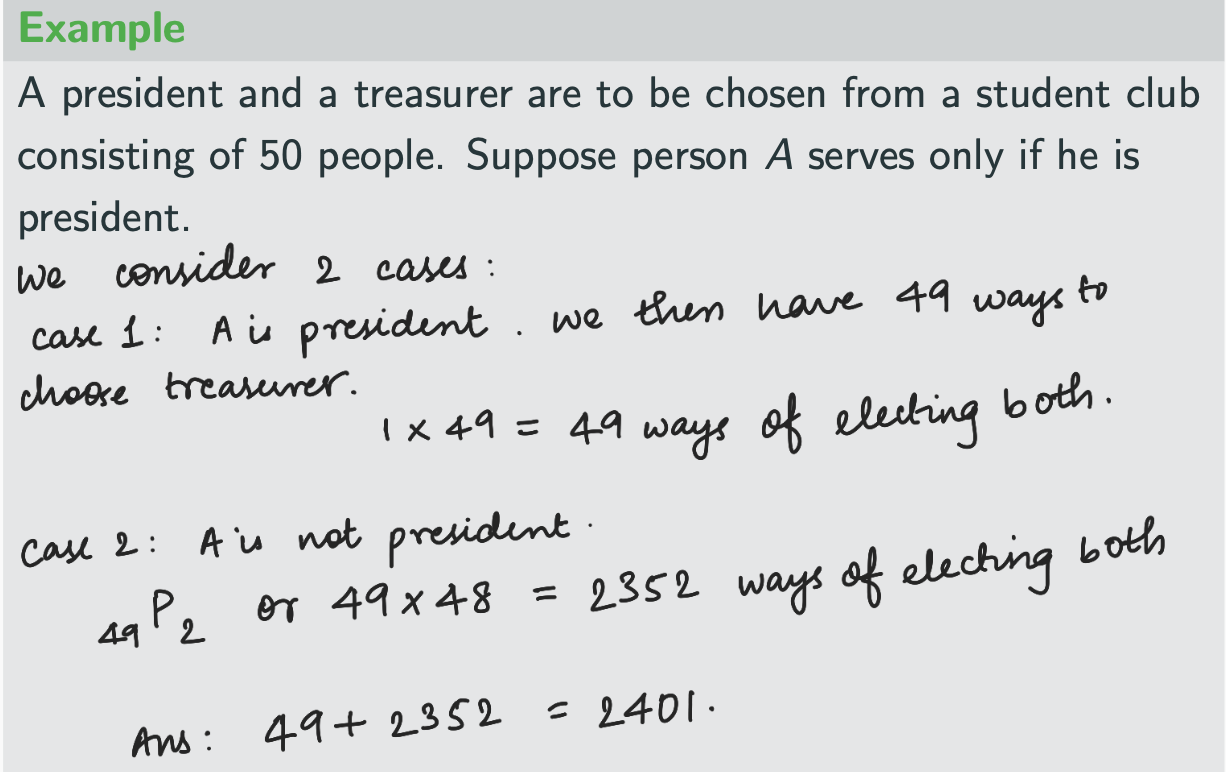 Example
A president and a treasurer are to be chosen from a student club
consisting of 50 people. Suppose person A serves only if he is
president.
We consider 2 cases:
case 1: A is president. we then have 49 ways to
choose treasurer.
1 x 49 = 49 ways of electing both.
Case 2: A is not president.
₄₉P₂ or 49 x 48 = 2352 ways of electing both
Ans: 49 + 2352 = 2401.